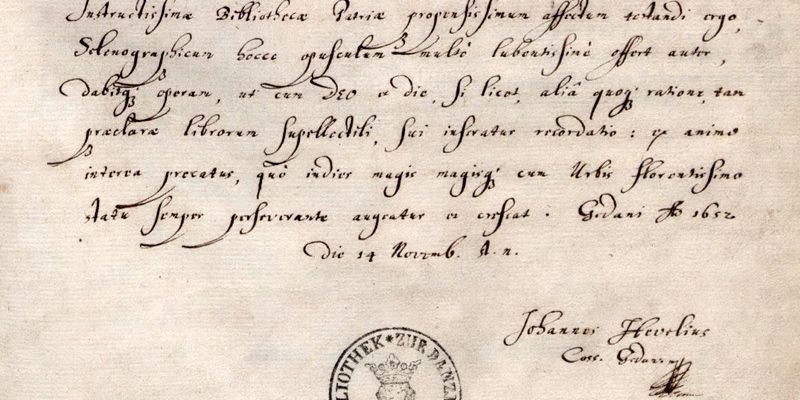 Instructissimæ Bibliothecæ Patriæ propensissimum affectum testandi ergo,
Selenographicum hocce opusculum multò lubentissimè offert autor,
dabitq; operam, ut cum DEO et die, si licet, aliâ quoq; ratione, tam
præclaræ librorum supellectili, sui inseratur recordatio: ex animo
interea precatus, quò indies magis magisq; cum Urbis florentissimo
statu semper perseverante augeatur et crescat. Gedani Ao 1652
die 14 Novemb. st. n.
Johannes Hevelius
Coss. Gedanens
BLIOTHEK * ZUR DANZI